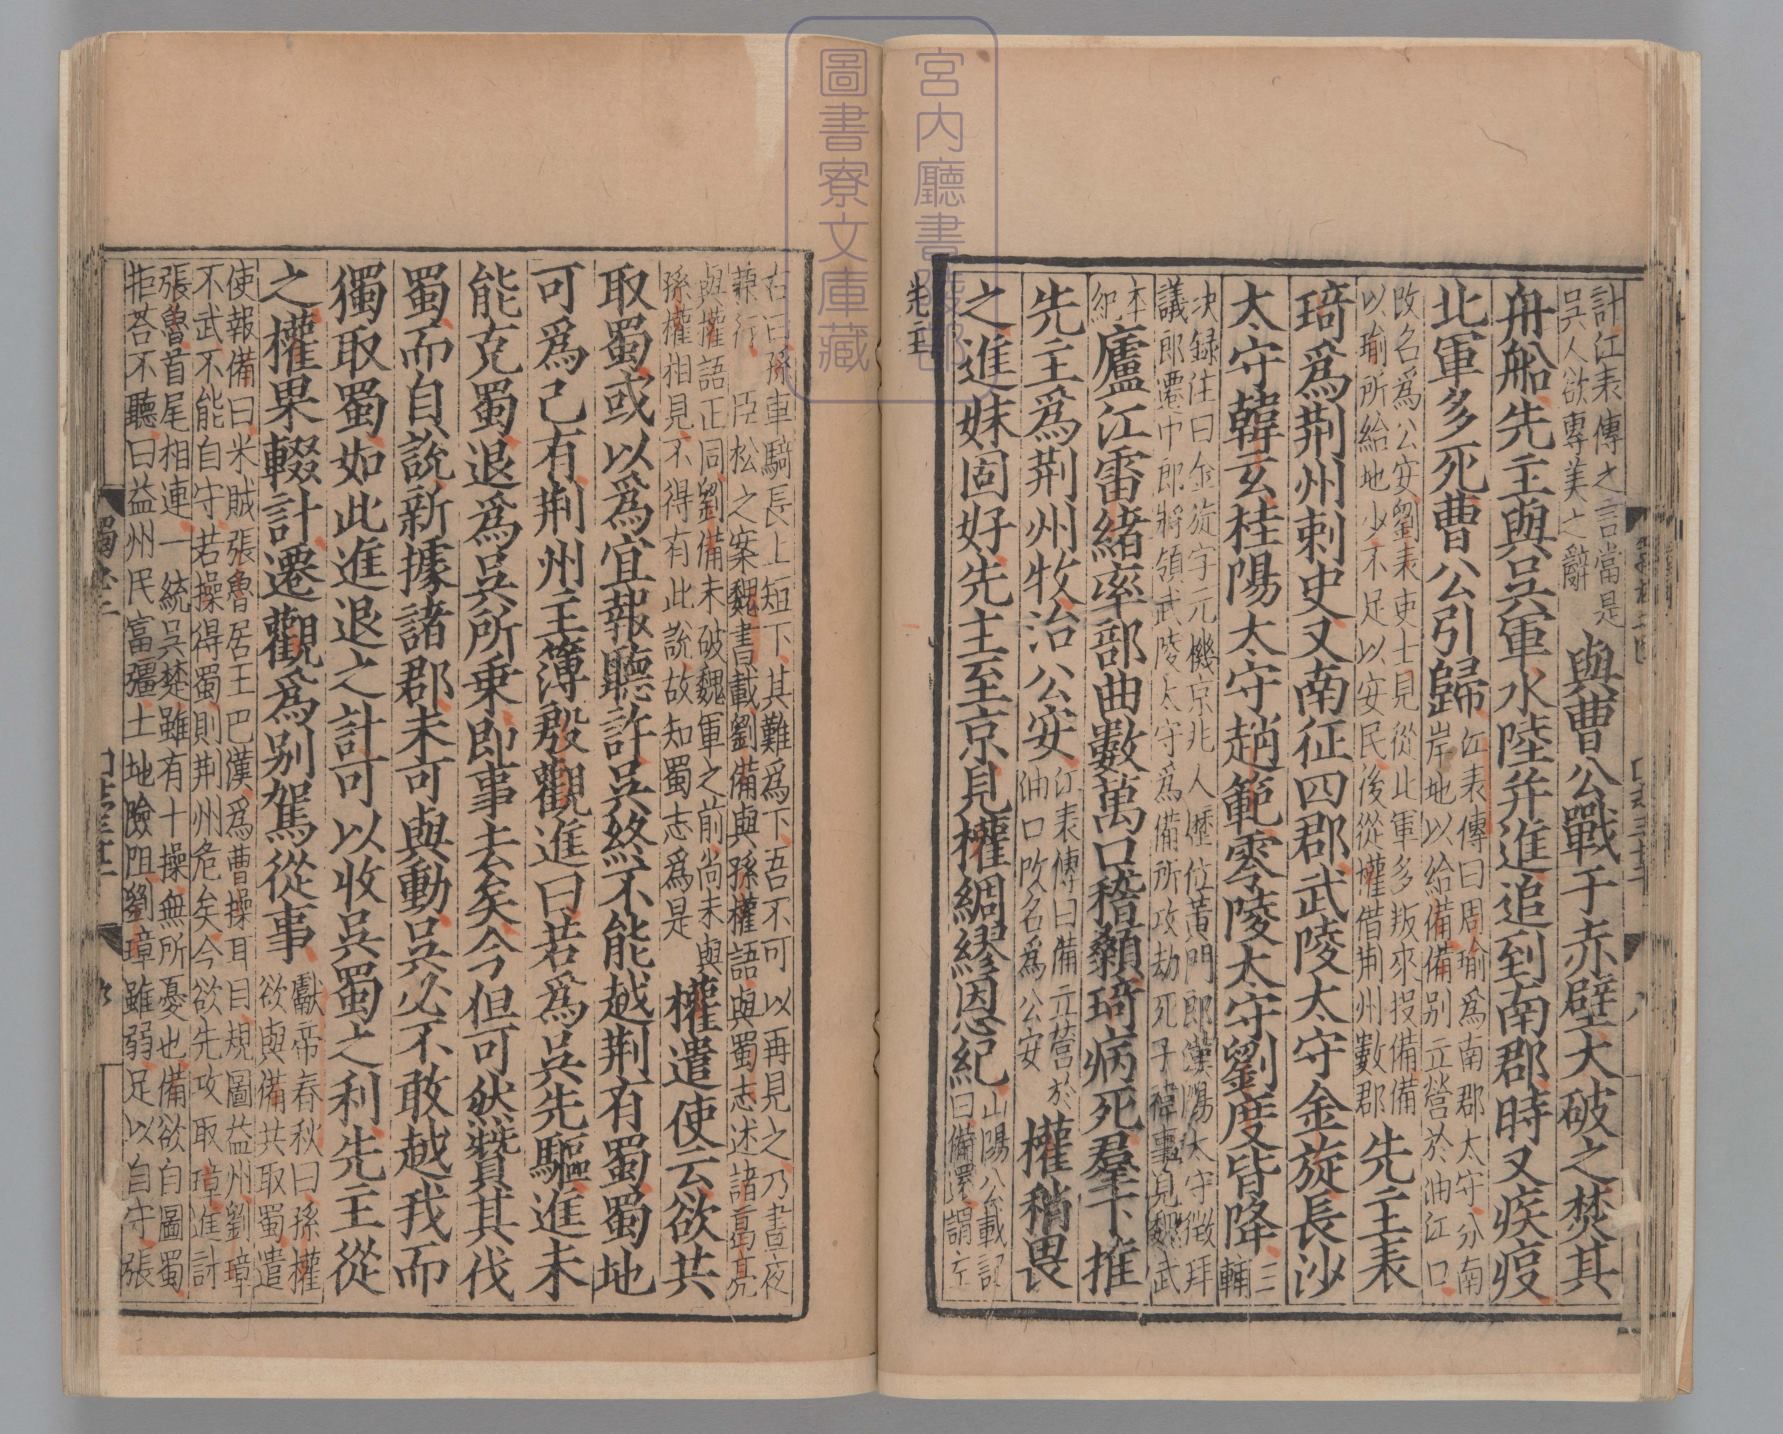 計江表傳之言當是
吳人欲專美之辭
與曹公戰于赤壁大破之焚其
舟船先主與吳軍水陸并進追到南郡時又疾疫
北軍多死曹公引歸
江表傳曰周瑜爲南郡太守分南
岸地以給備備别立營於油江口
改名爲公安劉表吏士見從北軍多叛來投備備
以瑜所給地少不足以安民後從權借荆州數郡
先主表
琦爲荆州刺史又南征四郡武陵太守金旋長沙
太守韓玄桂陽太守趙範零陵太守劉度皆降
三
輔
决録注曰金旋字元機京兆人歷位黄門郎漢陽太守徵拜
議郎遷中郎將領武陵太守爲備所攻劫死子禕事見魏武
本
紀
廬江雷緒率部曲數萬口稽顙琦病死羣下推
先主爲荆州牧治公安
江表傳曰備立營於
油口改名爲公安
權稍畏
之進妹固好先主至京見權綢繆恩紀
山陽公載記
曰備還謂左
先主
右曰孫車騎長上短下其難爲下吾不可以再見之乃晝夜
兼行 臣松之案魏書載劉備與孫權語與蜀志述諸葛亮
與權語正同劉備未破魏軍之前尚未與
孫權相見不得有此說故知蜀志爲是
權遣使云欲共
取蜀或以爲宜報聽許吳終不能越荆有蜀蜀地
可爲己有荆州主簿殷觀進曰若爲吳先驅進未
能克蜀退爲吳所乗即事去矣今但可然贊其伐
蜀而自說新據諸郡未可與動吳必不敢越我而
獨取蜀如此進退之計可以收吳蜀之利先主從
之權果輟計遷觀爲别駕從事
獻帝春秋曰孫權
欲與備共取蜀遣
使報備曰米賊張魯居王巴漢爲曹操耳目規圖益州劉璋
不武不能自守若操得蜀則荆州危矣今欲先攻取璋進討
張魯首尾相連一統吳楚雖有十操無所憂也備欲自圖蜀
拒荅不聽曰益州民富彊土地險阻劉璋雖弱足以自守張
宮内廳書陵部
圖書寮文庫藏